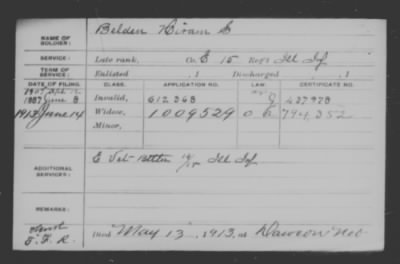 NAME OF SOLDIER: Belden Hiram S
SERVICE: Late rank, Co. E 15 Reg't Ill Inf
TERM OF SERVICE: Enlisted , 1 Discharged , 1
DATE OF FILING. CLASS. APPLICATION NO. LAW. CERTIFICATE NO.
1887 June 8 Invalid, 612368 G 437978
1913 June 14 Widow, 1009529 O. G. 794352
Minor,
ADDITIONAL SERVICES: E Vet Battln 14/15 Ill Inf
REMARKS:
Died May 13, 1913, at Dawson Neb